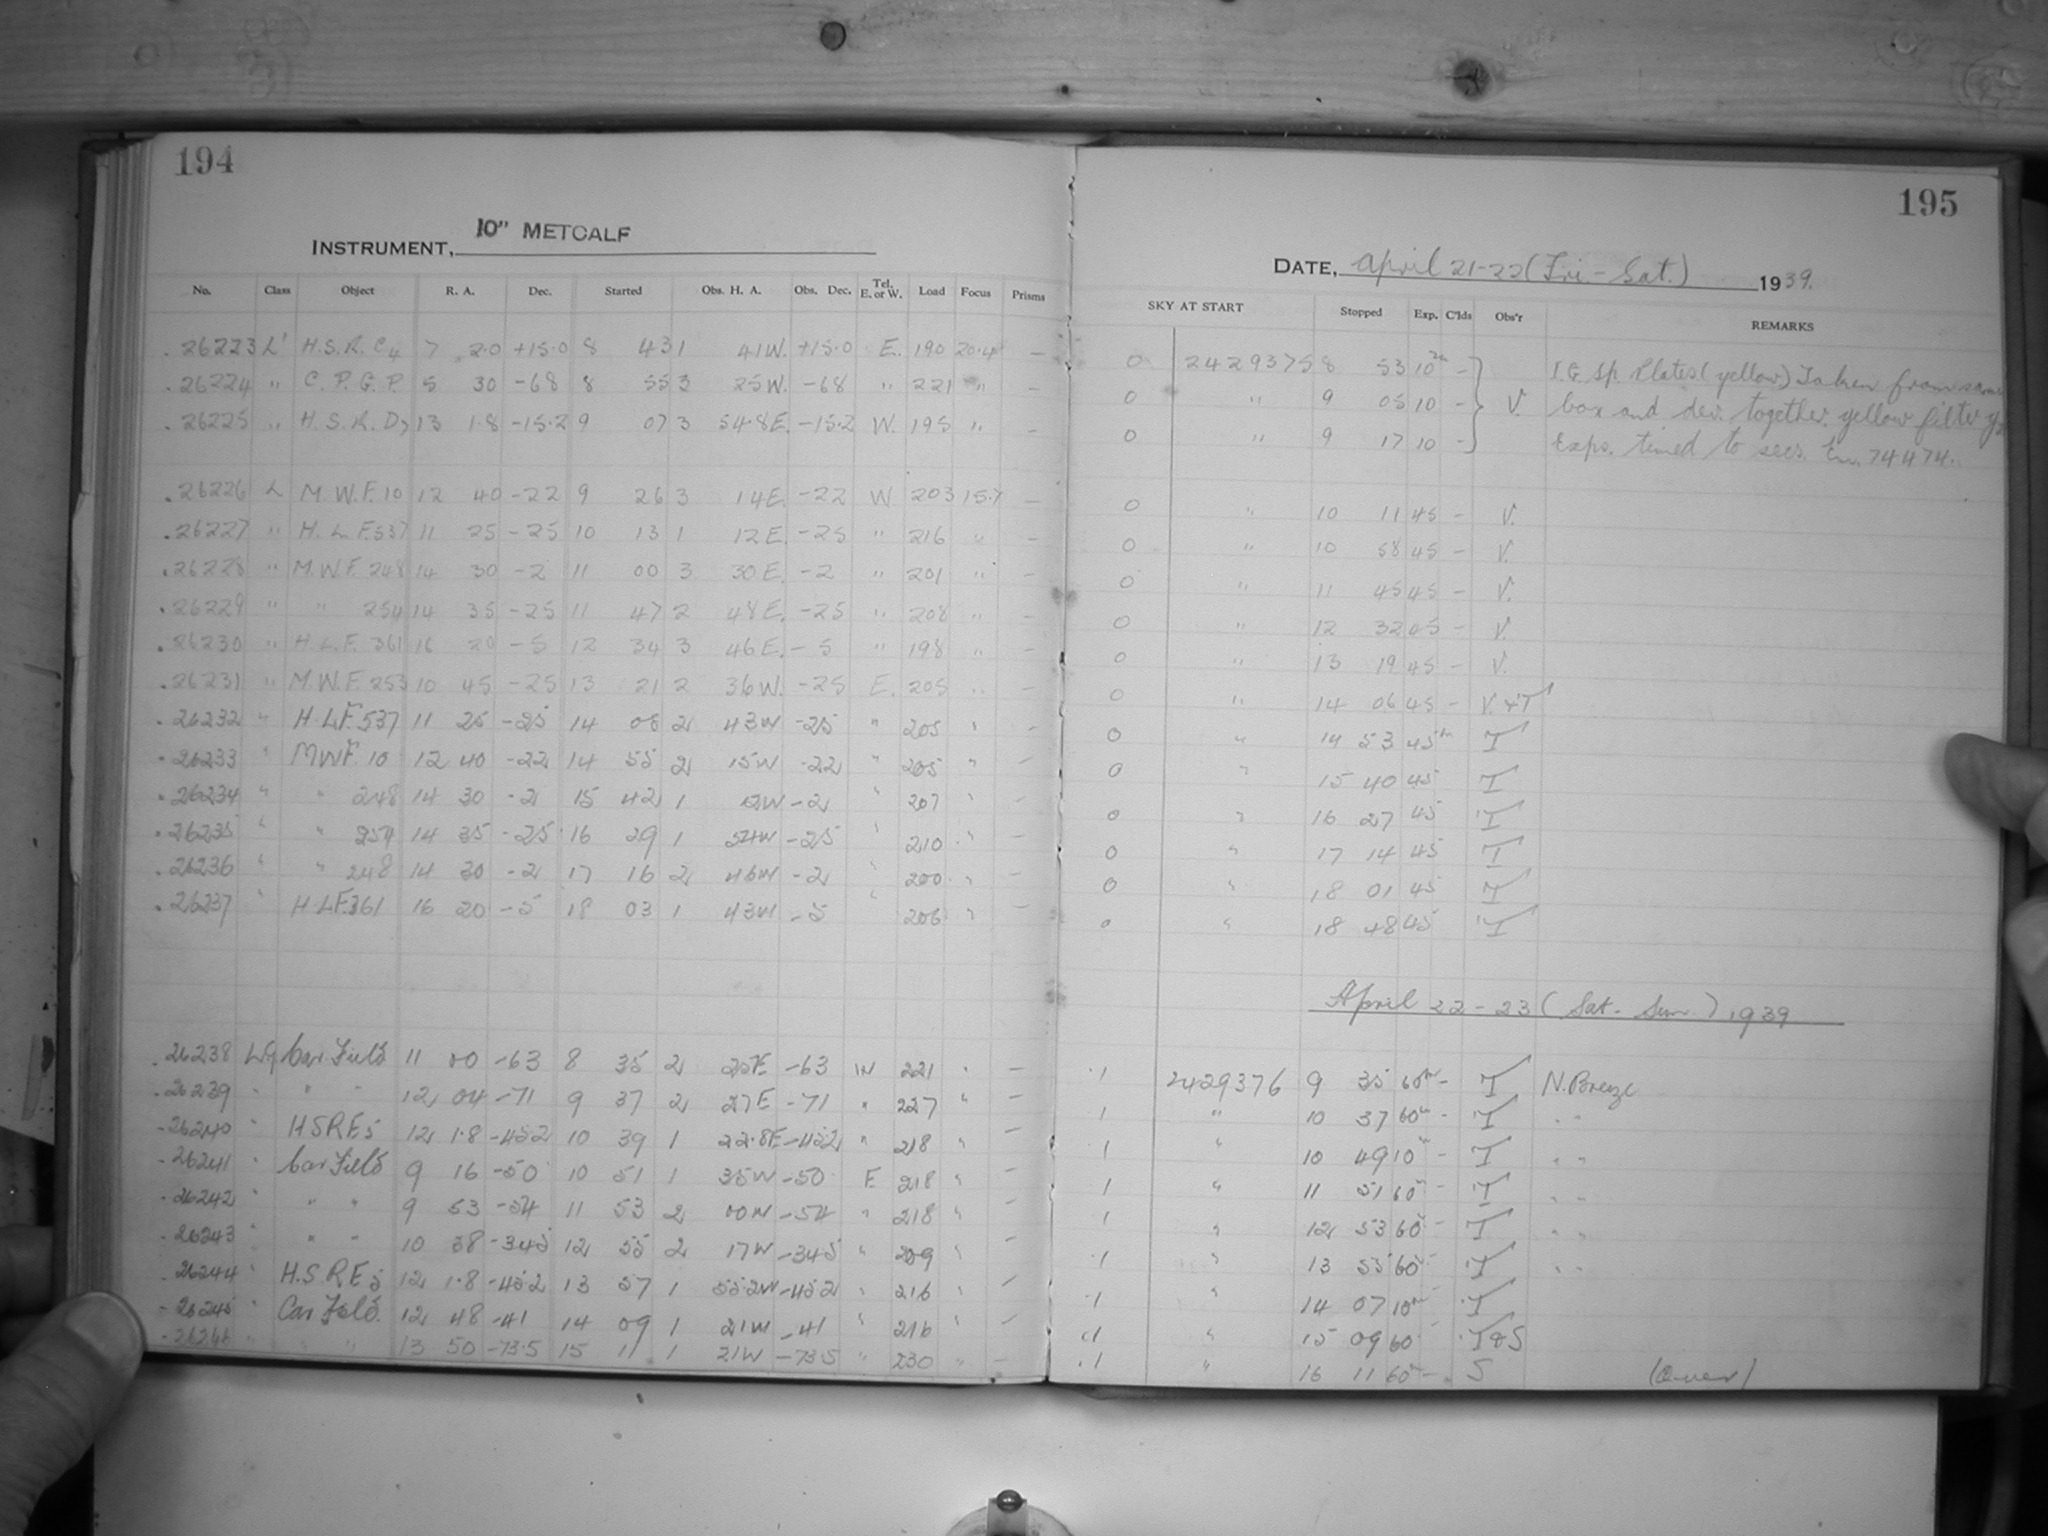 194
INSTRUMENT, 10" METCALF
No. Class Object R. A. Dec. Started Obs. H. A. Obs. Dec. Tel. E. or W. Load Focus Prisms
26223 L' H.S.R. C4 7 2.0 +15.0 8 43 1 41W. +15.0 E. 190 20.4 –
26224 " C.P.G.P. 5 30 -68 8 55 3 25W. -68 " 221 " –
26225 " H.S.R. D7 13 1.8 -15.2 9 07 3 54.8E. -15.2 W. 195 " –
26226 L M.W.F. 10 12 40 -22 9 26 3 14E. -22 W 203 15.7 –
26227 " H.L.F. 537 11 25 -25 10 13 1 12E. -25 " 216 " –
26228 " M.W.F. 248 14 30 -2 11 00 3 30E. -2 " 201 " –
26229 " " 254 14 35 -25 11 47 2 48E. -25 " 208 " –
26230 " H.L.F. 361 16 20 -5 12 34 3 46E. -5 " 198 " –
26231 " M.W.F. 253 10 45 -25 13 21 2 36W. -25 E. 205 " –
26232 " H.L.F. 537 11 25 -25 14 08 2 43W -25 " 205 " –
26233 " MWF. 10 12 40 -22 14 55 2 15W -22 " 205 " –
26234 " " 248 14 30 -2 15 42 1 12W -2 " 207 " –
26235 " " 254 14 35 -25 16 29 1 54W -25 " 210 " –
26236 " " 248 14 30 -2 17 16 2 46W -2 " 200 " –
26237 " H.L.F. 361 16 20 -5 18 03 1 43W -5 " 206 " –
26238 LG Car Field 11 00 -63 8 35 2 25E -63 W 221 " –
26239 " " " 12 04 -71 9 37 2 27E -71 " 227 " –
26240 " HSRE5 12 1.8 -45.2 10 39 1 22.8E -45.2 " 218 " –
26241 " Car Field 9 16 -50 10 51 1 35W -50 E 218 " –
26242 " " " 9 53 -54 11 53 2 00W -54 " 218 " –
26243 " " " 10 38 -34.5 12 55 2 17W -34.5 " 209 " –
26244 " H.S.R.E5 12 1.8 -45.2 13 57 1 55.2W -45.2 " 216 " –
26245 " Car Field. 12 48 -41 14 09 1 21W -41 " 216 " –
26246 " " " 13 50 -73.5 15 11 1 21W -73.5 " 230 " –
195
DATE, April 21-22 (Fri. - Sat.) 1939.
SKY AT START Stopped Exp. C'lds Obs'r REMARKS
0 2429375 8 53 10m – I.G. Sp. Plates (yellow) Taken from same
0 " 9 05 10 – V. box and dev. together. yellow filter
0 " 9 17 10 – Exps. timed to secs. 74474.
0 " 10 11 45 – V.
0 " 10 58 45 – V.
0 " 11 45 45 – V.
0 " 12 32 45 – V.
0 " 13 19 45 – V.
0 " 14 06 45 – V. & T
0 " 14 53 45m T
0 " 15 40 45 T
0 " 16 27 45 T
0 " 17 14 45 T
0 " 18 01 45 T
0 " 18 48 45 T
April 22-23 (Sat. - Sun.) 1939
.1 2429376 9 35 60m – T N. Breeze
1 " 10 37 60m – T " "
1 " 10 49 10m – T " "
1 " 11 51 60m – T " "
1 " 12 53 60m – T " "
.1 " 13 55 60m – T " "
.1 " 14 07 10m T
.1 " 15 09 60 T&S
.1 " 16 11 60m –. S (Over)